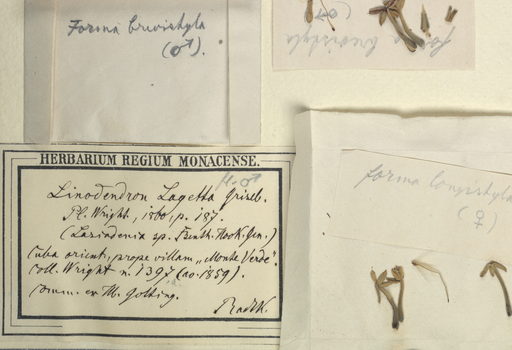 Forma brevistyla
(♂).
forma brevistyla
(♂)
HERBARIUM REGIUM MONACENSE.
Linodendron Lagetta Griseb.
Pl. Wright, 1860, p. 187.
(Lasiadenia sp. Benth. Hook. Gen.)
Cuba orient., prope villam „Monte Verde".
Coll. Wright n. 1397 (ao. 1859).
comm. ex H. Gotting.
Radlk.
forma longistyla
(♀)